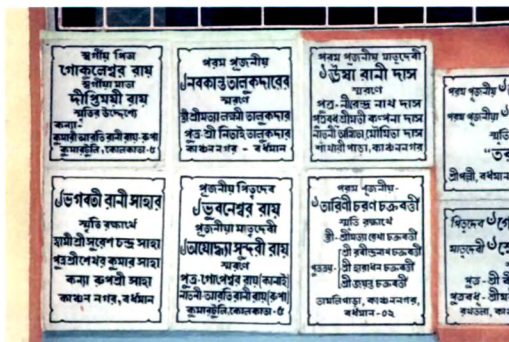 স্বর্গীয় পিতা
গোকুলেশ্বর রায়
স্বর্গীয়া মাতা
দীপ্তিময়ী রায়
স্মৃতির উদ্দেশ্যে
কন্যা-
কুমারী আরতি রানী রায়-রুপা
কুমারটুলি, কোলকাতা-৫
পরম পূজনীয়
ঁনবকান্ত তালুকদারের
স্মরণে
স্ত্রী শ্রীমত্যা লক্ষ্মী তালুকদার
পুত্র-শ্রী নিতাই তালুকদার
কাঞ্চন নগর - বর্ধমান
পরম পূজনীয়া মাতৃদেবী
ঁঊষা রানী দাস
স্মরণে
পুত্র-নীরেন্দ্র নাথ দাস
পুত্রবধূ শ্রীমতী কল্পনা দাস
নাতনী অমিতা মৌমিতা দাস
শাঁখারী পাড়া, কাঞ্চননগর
পরম পূজনীয়
পরম পূজনীয়া
স্মৃতি
শ্রীপল্লী, বর্ধমান
ঁভগবতী রানী সাহার
স্মৃতি রক্ষার্থে
স্বামী শ্রী সুরেশ চন্দ্র সাহা
পুত্র শ্রী শেখর কুমার সাহা
কন্যা রুপশ্রী সাহা
কাঞ্চন নগর, বর্ধমান
পূজনীয় পিতৃদেব
ঁভুবনেশ্বর রায়
পূজনীয়া মাতৃদেবী
ঁঅযোধ্যা সুন্দরী রায়
স্মরণে
পুত্র-গোপেশ্বর রায় (কানাই)
নাতনী আরতি রানী রায় (রুপা)
কুমারটুলি, কোলকাতা-৫
পরম পূজনীয়-
ঁতারিণী চরণ চক্রবর্ত্তী
স্মৃতি রক্ষার্থে
স্ত্রী-শ্রীমত্যা রেখা চক্রবর্ত্তী
শ্রী রবীন্দ্রনাথ চক্রবর্ত্তী
পুত্রত্রয় শ্রী হারাধন চক্রবর্ত্তী
শ্রী জয়ন্ত চক্রবর্ত্তী
তামলিপাড়া, কাঞ্চননগর,
বর্ধমান-০২
পিতৃদেব
মাতৃদেবী
পুত্র-শ্রী
পুত্রবধূ-শ্রীম
রথতলা,